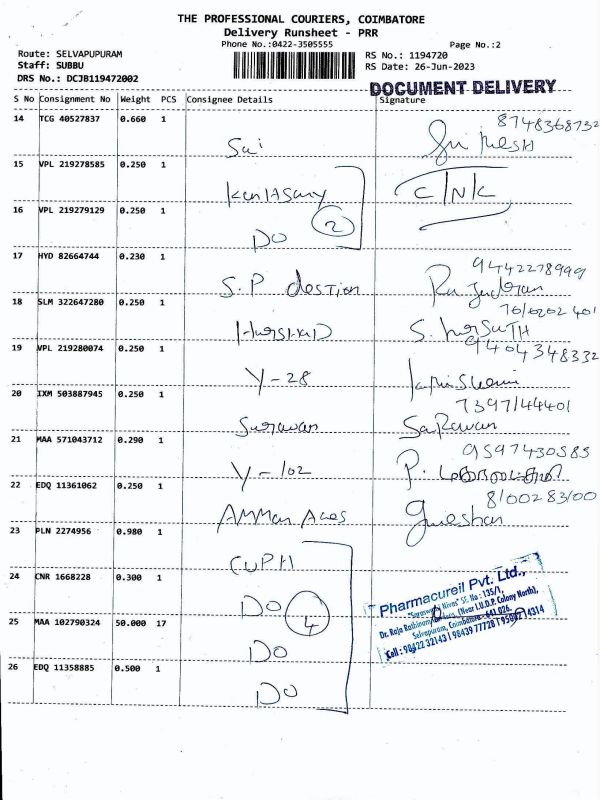 THE PROFESSIONAL COURIERS, COIMBATORE
Delivery Runsheet - PRR
Phone No.:0422-3505555
Page No.:2
Route: SELVAPUPURAM
RS No.: 1194720
Staff: SUBBU
RS Date: 26-Jun-2023
DRS No.: DCJB119472002
DOCUMENT DELIVERY
S No Consignment No Weight PCS Consignee Details Signature
14 TCG 40527837 0.660 1
8748368732
Sai
15 VPL 219278585 0.250 1
C/N/C
16 VPL 219279129 0.250 1
DO 2
17 HYD 82664744 0.230 1
9442278999
S.P
18 SLM 322647280 0.250 1
S.
19 VPL 219280074 0.250 1
9404348332
Y-28
20 IXM 503887945 0.250 1
7397144401
Saravan
21 MAA 571043712 0.290 1
9597430585
Y-102 P.
22 EDQ 11361062 0.250 1
8100283100
AMMan
23 PLN 2274956 0.980 1
CUPH
24 CNR 1668228 0.300 1
DO 4
25 MAA 102790324 50.000 17
DO
26 EDQ 11358885 0.500 1
DO
Pharmacureil Pvt. Ltd.,
"Saraswathi Nivas" SF. No : 135/1,
Dr. Raja Rathinam (Near I.U.D.P. Colony North),
Selvapuram, Coimbatore - 641 026.
Cell : 98422 32143 | 98439 77728 |